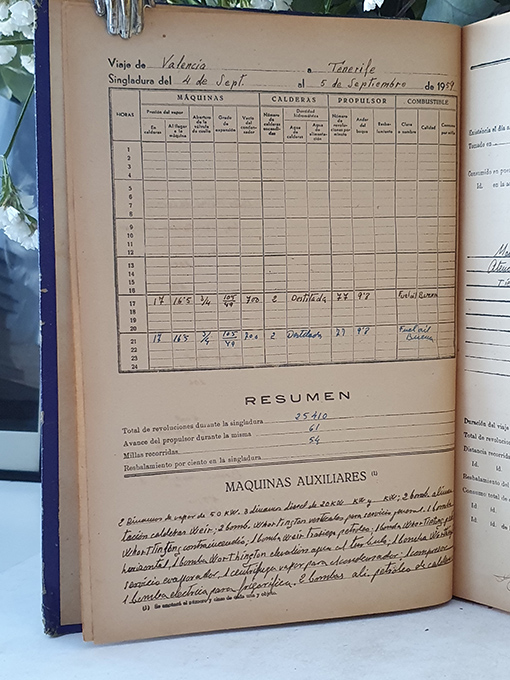 Viaje de Valencia a Tenerife
Singladura del 4 de Sept. al 5 de Septiembre de 1959
MÁQUINAS CALDERAS PROPULSOR COMBUSTIBLE
HORAS
Presión del vapor
En calderas
Al llegar a la máquina
Abertura de la válvula de cuello
Grado de expansión
Vacío del condensador
Número de calderas encendidas
Densidad hidrométrica
Agua de calderas
Agua de alimentación
Número de revoluciones por minuto
Andar del buque
Resbalamiento
Clase o nombre
Calidad
Consumo por milla
1
2
3
4
5
6
7
8
9
10
11
12
13
14
15
16
17 17 16'5 3/4 105/49 700 2 Destilada 77 9'8 Fueloil Buena
18
19
20
21 17 16'5 3/4 105/49 700 2 Destilada 79 9'8 Fueloil Buena
22
23
24
RESUMEN
Total de revoluciones durante la singladura 25410
Avance del propulsor durante la misma 61
Millas recorridas 54
Resbalamiento por ciento en la singladura
MAQUINAS AUXILIARES (1)
2 Dinamos de vapor de 50 KW. 3 dinamos diesel de 20 KW KW y KW; 2 bomb. alimen
tación calderas Weir; 2 bomb. Whortington verticales para servicio general. 1 bomba
Whortington contraincendio; 1 bomba Weir trasiego petroleo; 1 bomba Whortington
horizontal, 1 bomba Worthington elevadora agua al 1 bomba Worthing
servicio evaporador, 1 centrifuga vapor para condensador; 1 compresor
1 bomba electrica para frigorifica. 2 bombas ali. petroleo de calderas
(1) Se anotará el número y clase de cada una y objeto.
Existencia el día a
Tomado en
Consumido en
Id. en la
Duración del viaje
Total de revoluciones
Distancia recorrida
Id. Id.
Resbalamiento del
Consumo total de
Id. Id.
Id. de
Id. d